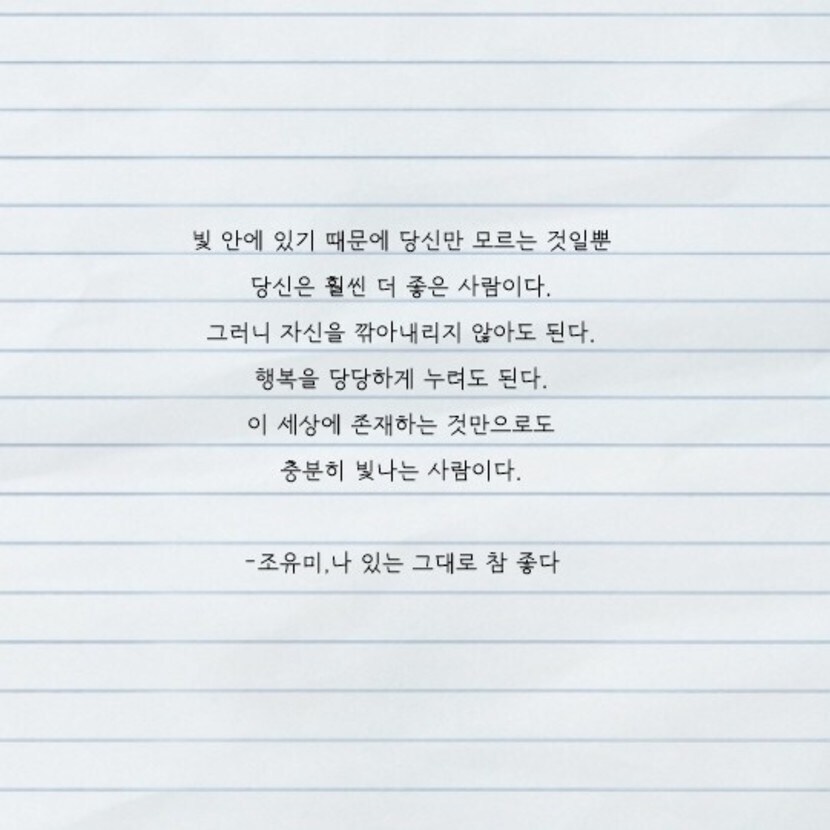 빛 안에 있기 때문에 당신만 모르는 것일뿐
당신은 훨씬 더 좋은 사람이다.
그러니 자신을 깎아내리지 않아도 된다.
행복을 당당하게 누려도 된다.
이 세상에 존재하는 것만으로도
충분히 빛나는 사람이다.
-조유미,나 있는 그대로 참 좋다